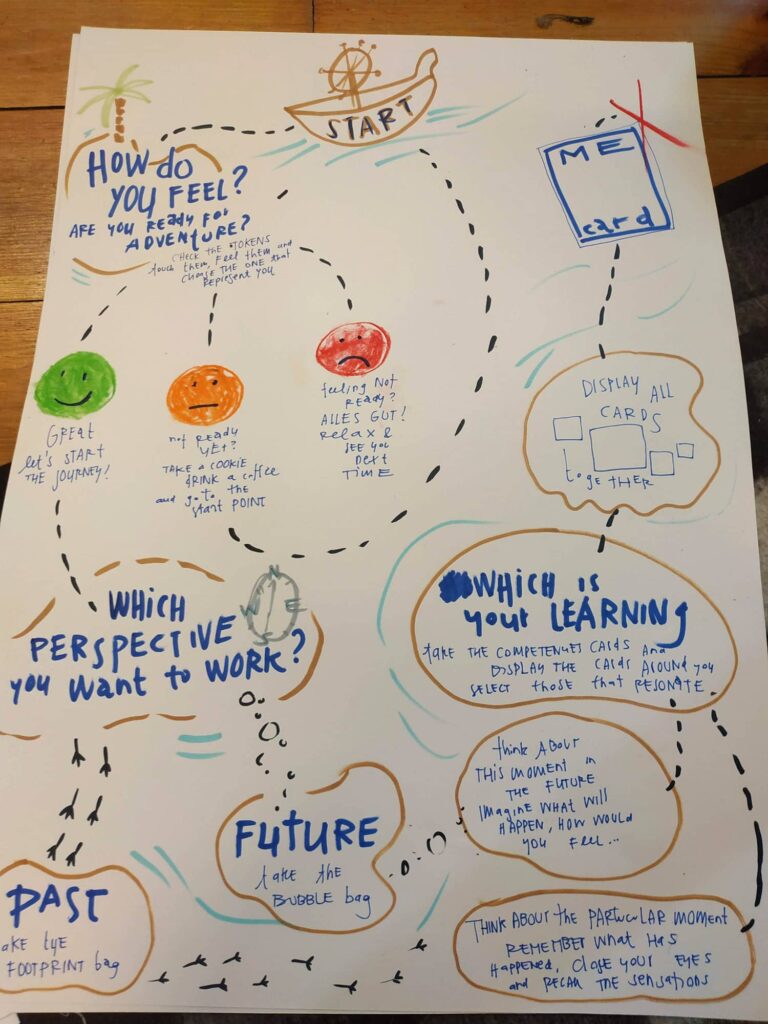 START
HOW do
YOU FEEL?
ARE YOU READY FOR
ADVENTURE?
CHECK THE TOKENS
touch them, Feel them and
CHOOSE THE ONE that
REPRESENT YOU
GREAT
let's START
THE JOURNEY!
not READY
YET?
TAKE A COOKIE
DRINK a coffee
and go to the
start POINT
feeling NOT
READY?
ALLES GUT!
Relax &
SEE you
next
TIME
WHICH
PERSPECTIVE
you want to WORK?
N
W
E
FUTURE
take the
BUBBLE bag
PAST
ake tye
FOOTPRINT bag
ME
card
DISPLAY ALL
CARDS
togeTHER
WHICH is
your LEARNING
take THE COMPETENCES CARDS AND
DISPLAY THE CARDS AROUND you
SELECT those that RESONATE
think ABOUT
THIS moment in
THE FUTURE
Imagine WHAT WILL
HAPPEN, HOW WOULD
you FEEL...
THINK ABOUT the PARTICULAR MOMENT
REMEMBER WHAT HAS
Happened, close your EYES
and RECALL THE sensations